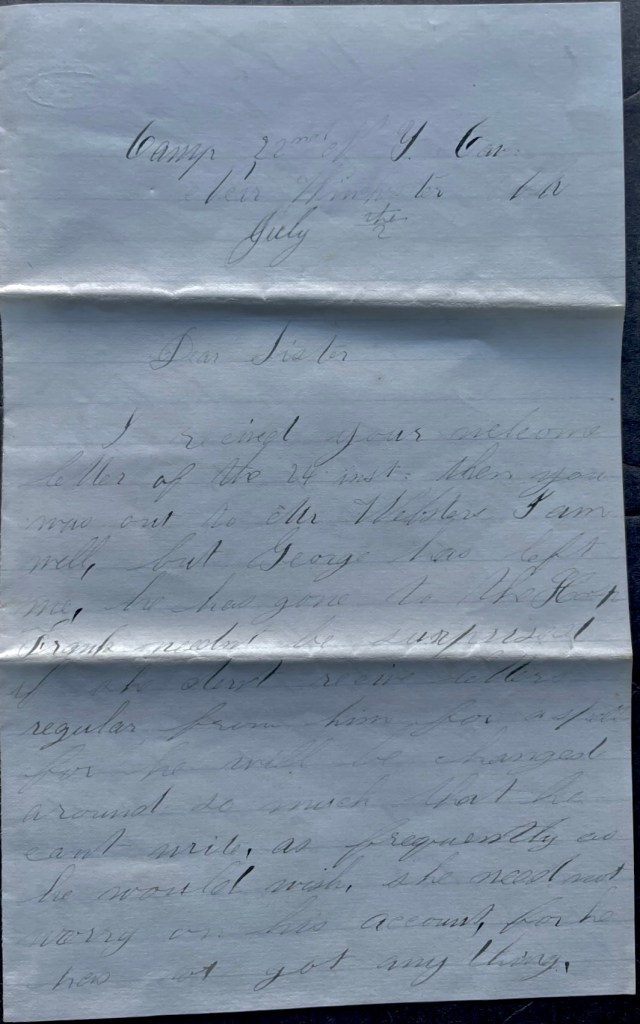 Camp 22nd N Y. Cav.
Near Winchester VA
July
Dear Sister
I recived your welcome
letter of the 24 inst. then you
was out to Mr Websters I am
well, but George has left
me, he has gone to the Hosp
Frank neednt be surprised
if she dont recive letters
regular from him for a
for he will be changed
around so much that he
cant write, as frequently as
he would wish, she need not
worry on his account, for he
has not got any thing,